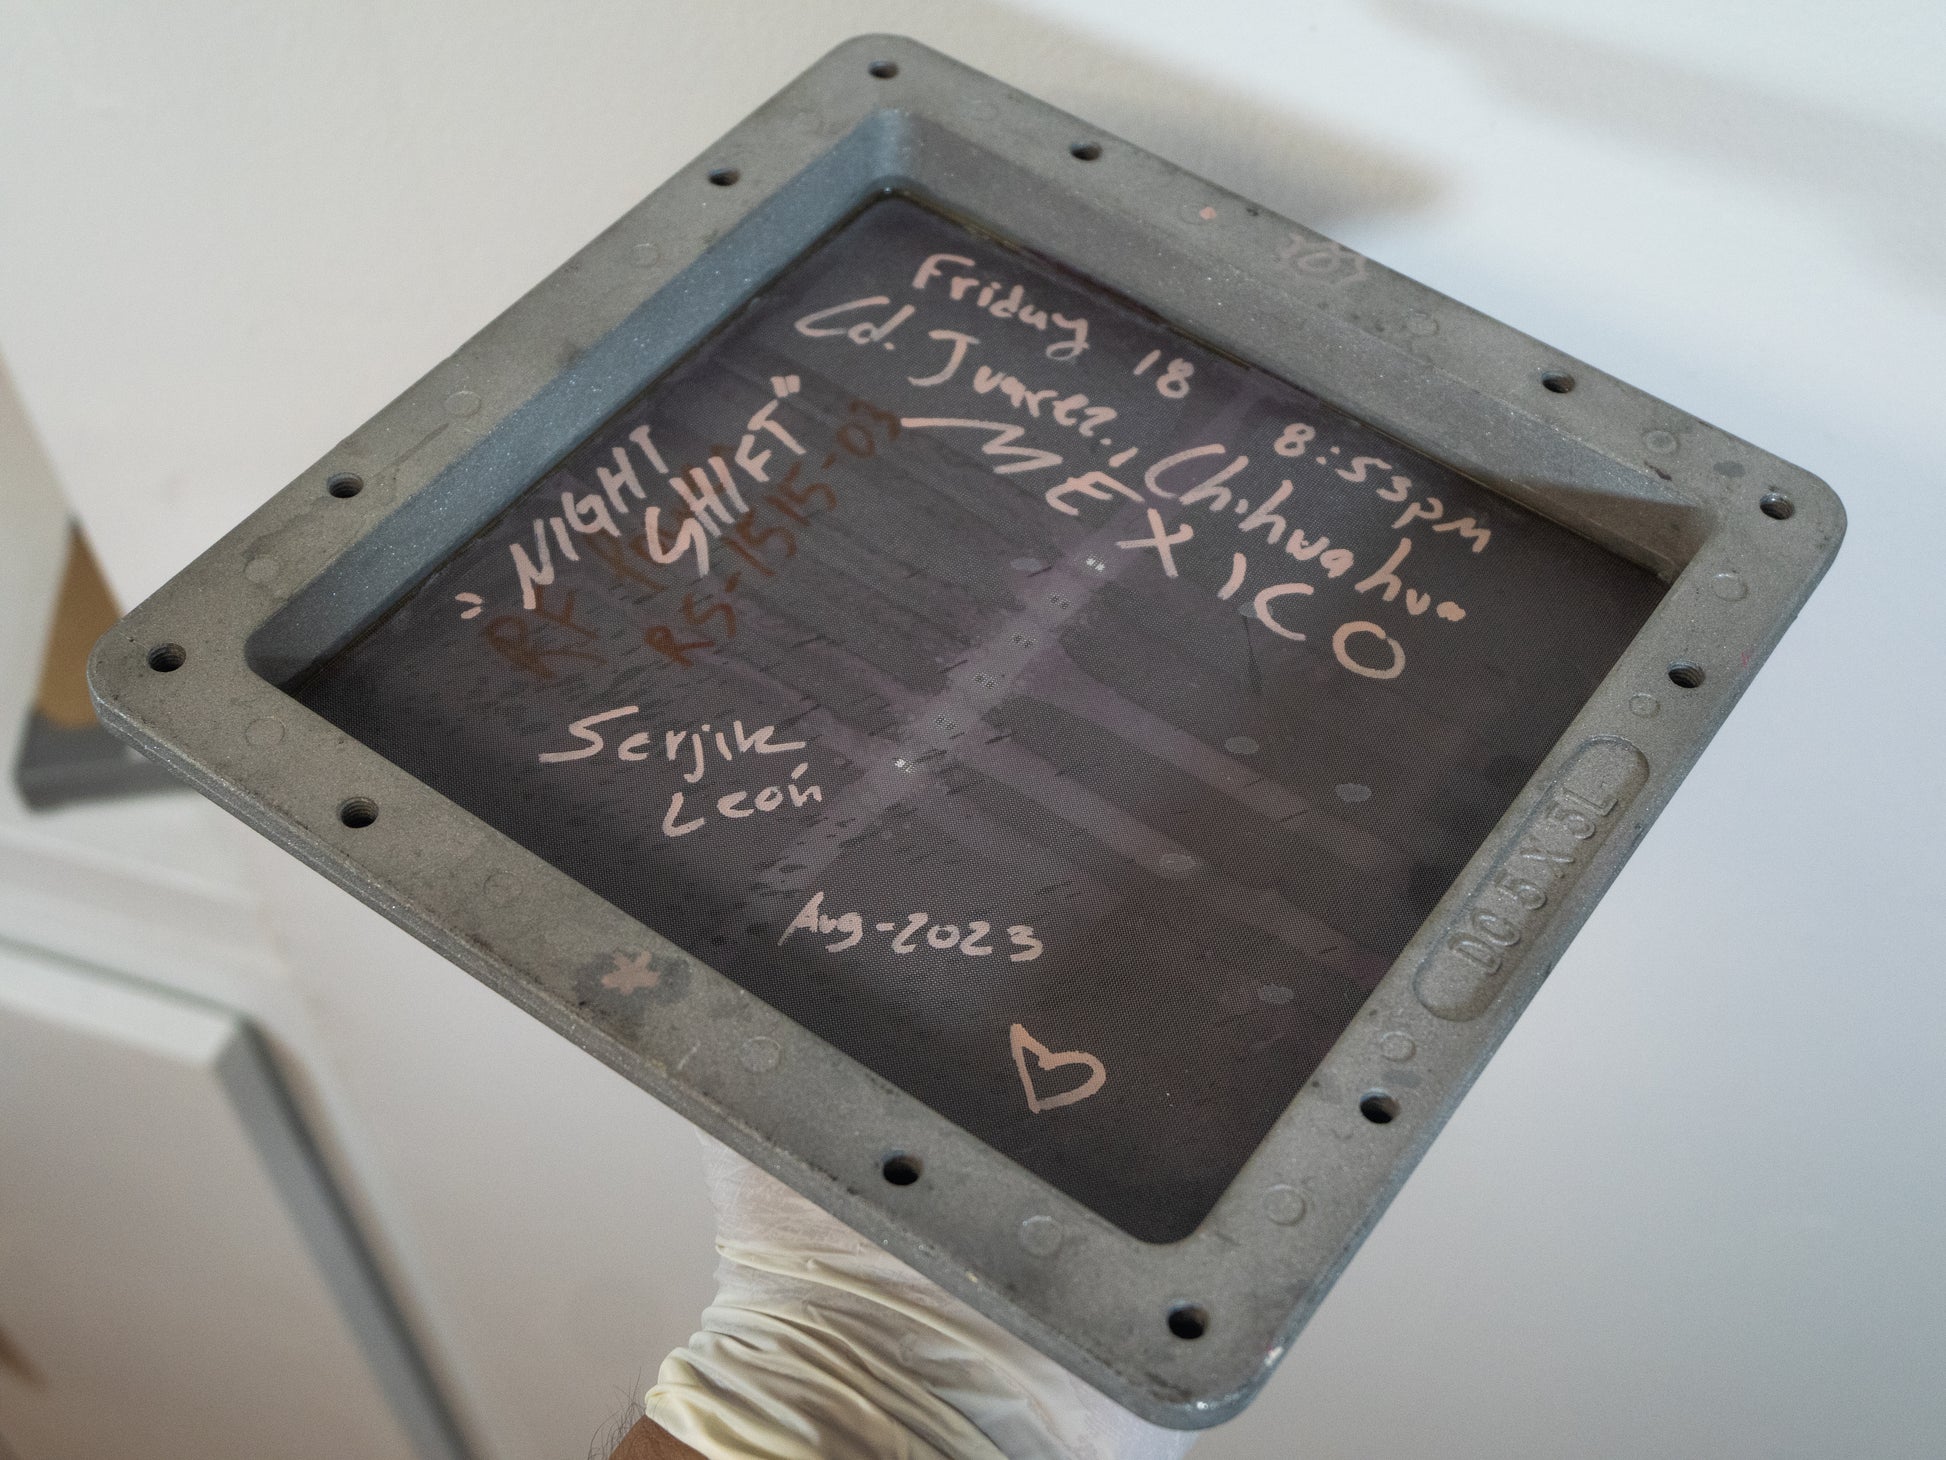 Friday 18 8:53pm
Cd. Juarez, Chihuahua
MEXICO
"NIGHT
SHIFT"
RF
RS-1515-03
Serjik
León
Aug-2023
DC 5 X 5L